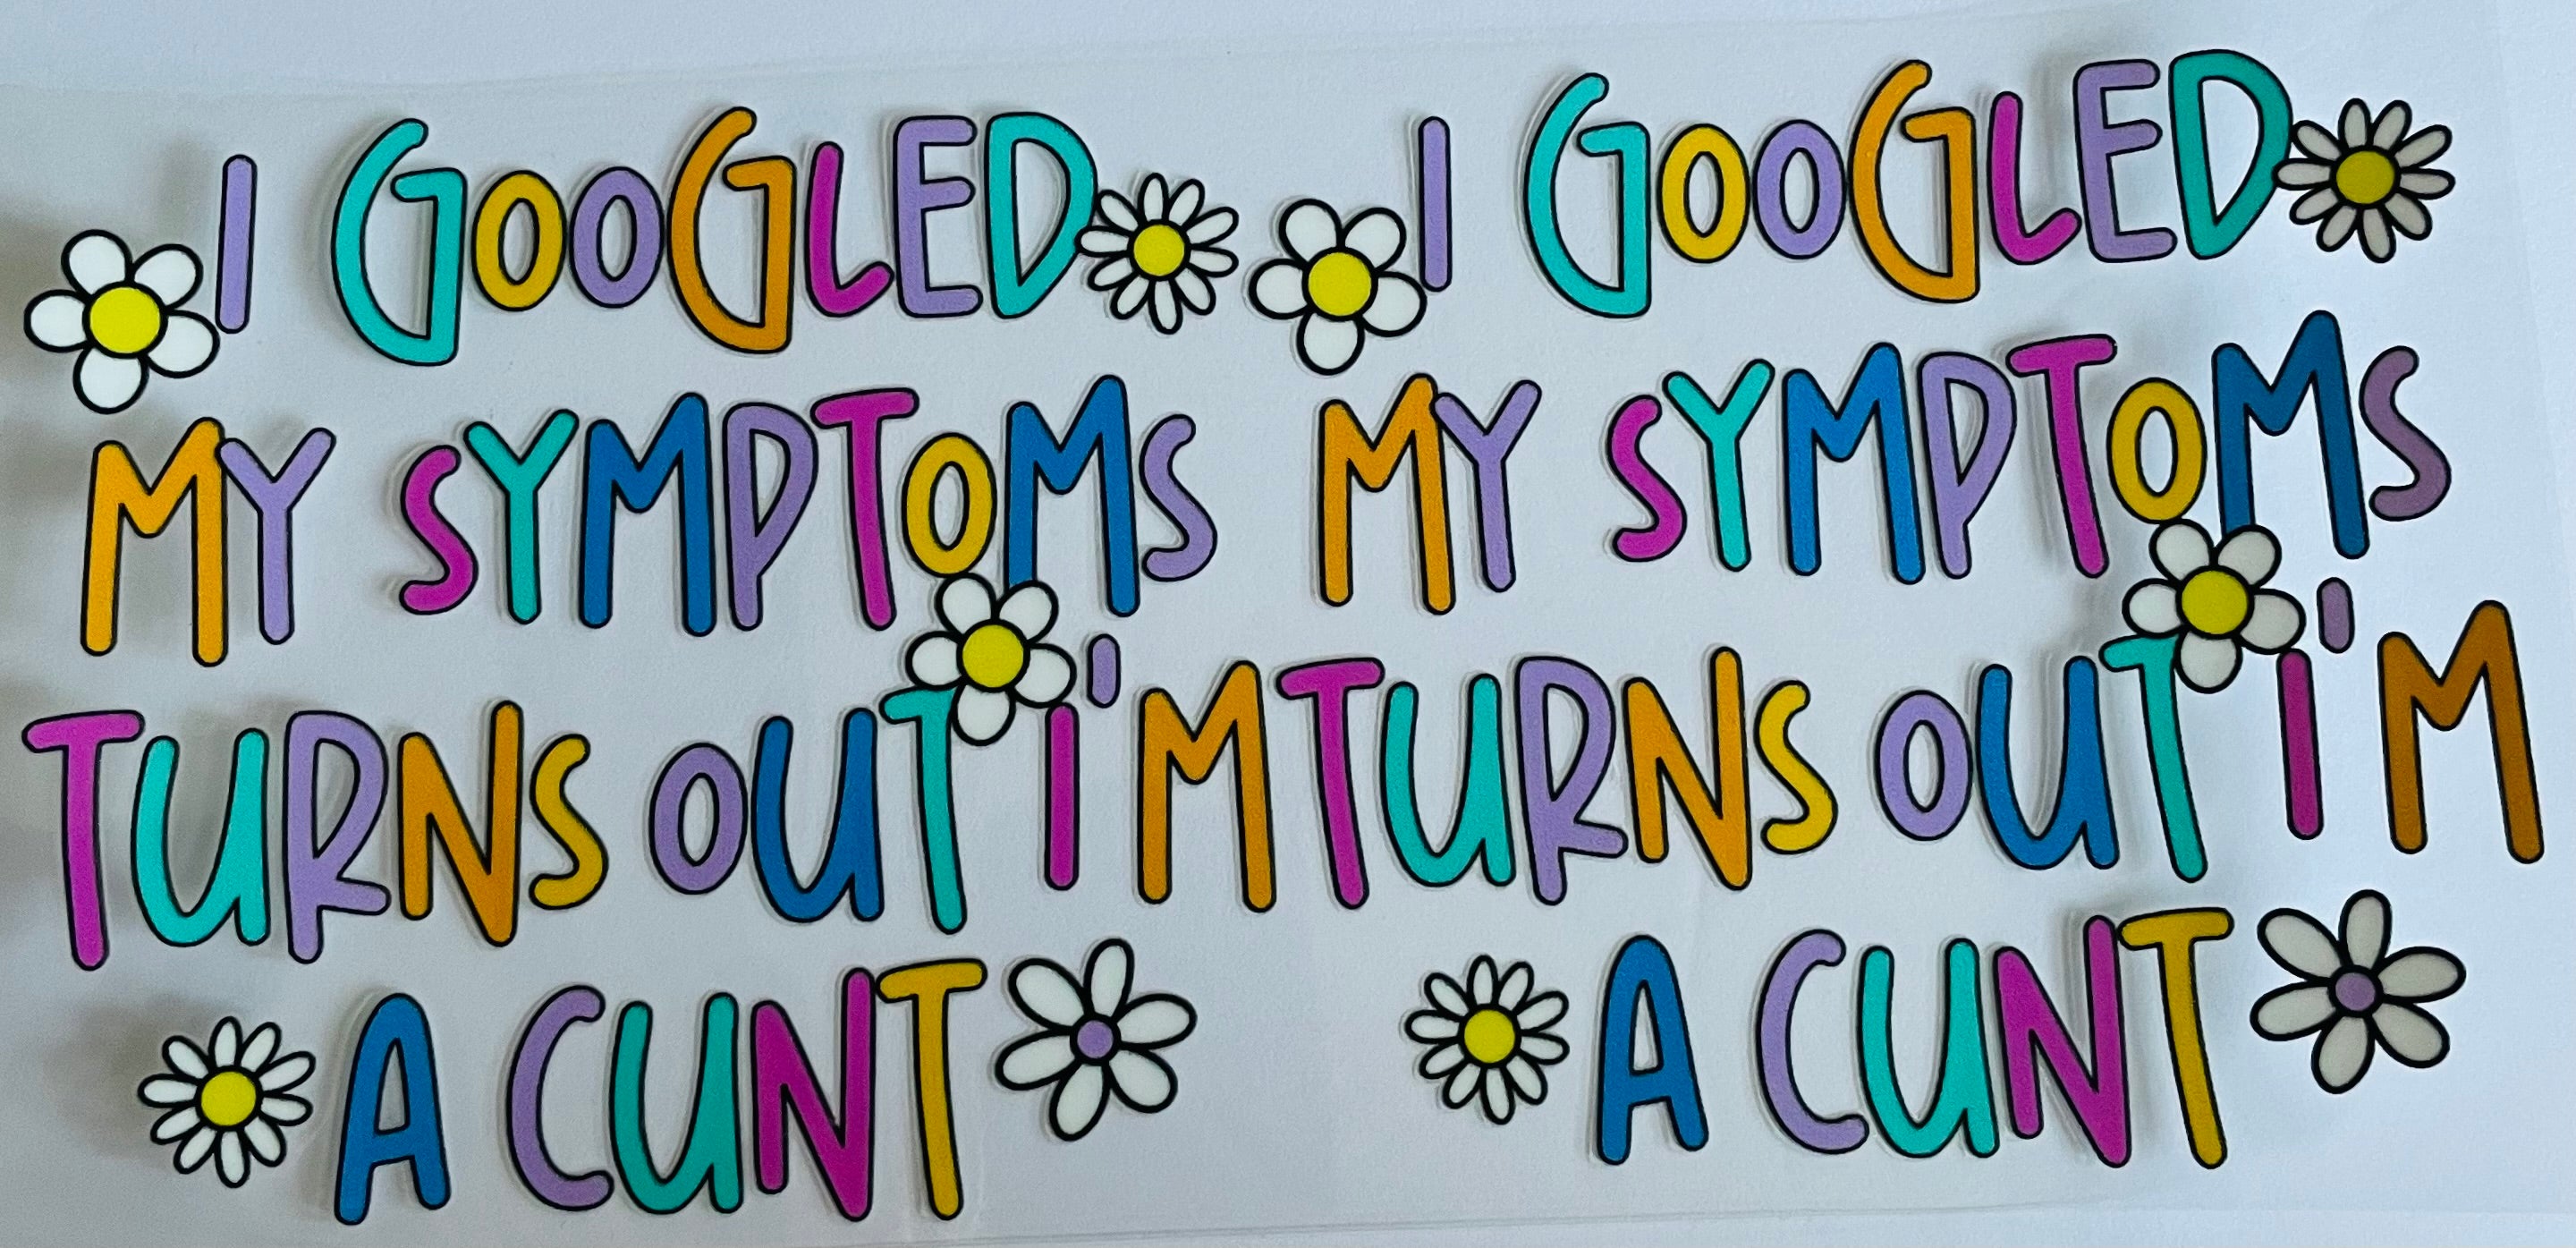 I GOOGLED
MY SYMPTOMS
TURNS OUT I'M
A CUNT
I GOOGLED
MY SYMPTOMS
TURNS OUT I'M
A CUNT